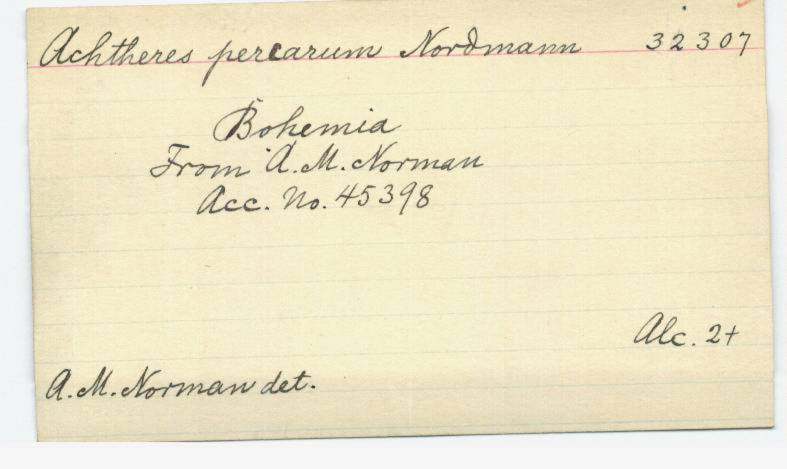 Achtheres percarum Nordmann 32307
Bohemia
From A. M. Norman
Acc. No. 45398
Alc. 2+
A. M. Norman det.